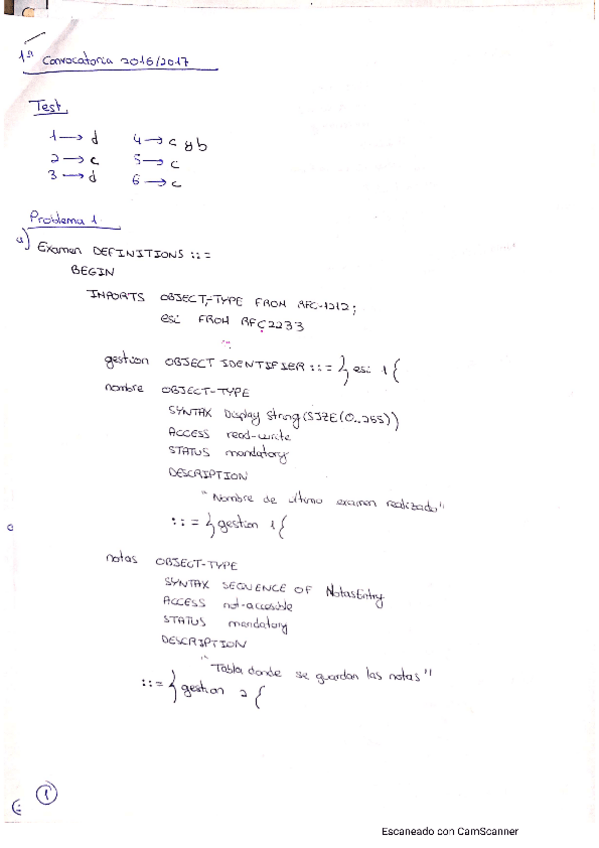 1ª Convocatoria 2016/2017
Test.
1 → d 4 → c y b
2 → c 5 → c
3 → d 6 → c
Problema 1
a) Examen DEFINITIONS ::=
BEGIN
IMPORTS OBJECT-TYPE FROM RFC-1212;
esi FROM RFC2233
gestion OBJECT IDENTIFIER ::= } esi 1 {
nombre OBJECT-TYPE
SYNTAX Display String (SIZE (0..255))
ACCESS read-write
STATUS mandatory
DESCRIPTION
"Nombre de ultimo examen realizado"
::= } gestion 1 {
notas OBJECT-TYPE
SYNTAX SEQUENCE OF NotasEntry
ACCESS not-accesible
STATUS mandatory
DESCRIPTION
"Tabla donde se guardan las notas"
::= } gestion 2 {
1
Escaneado con CamScanner